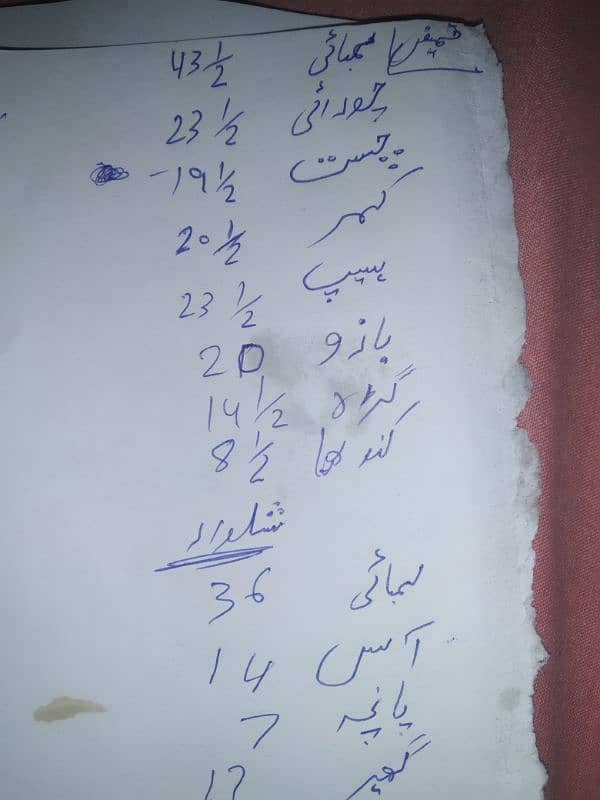 قمیض لمبائی 43 1/2
چوڑائی 23 1/2
چست 19 1/2
کمر 20 1/2
ہیپ 23 1/2
بازو 20
گلہ 14 1/2
کندھا 8 1/2
شلوار
لمبائی 36
آس 14
پانچہ 7
گھیر